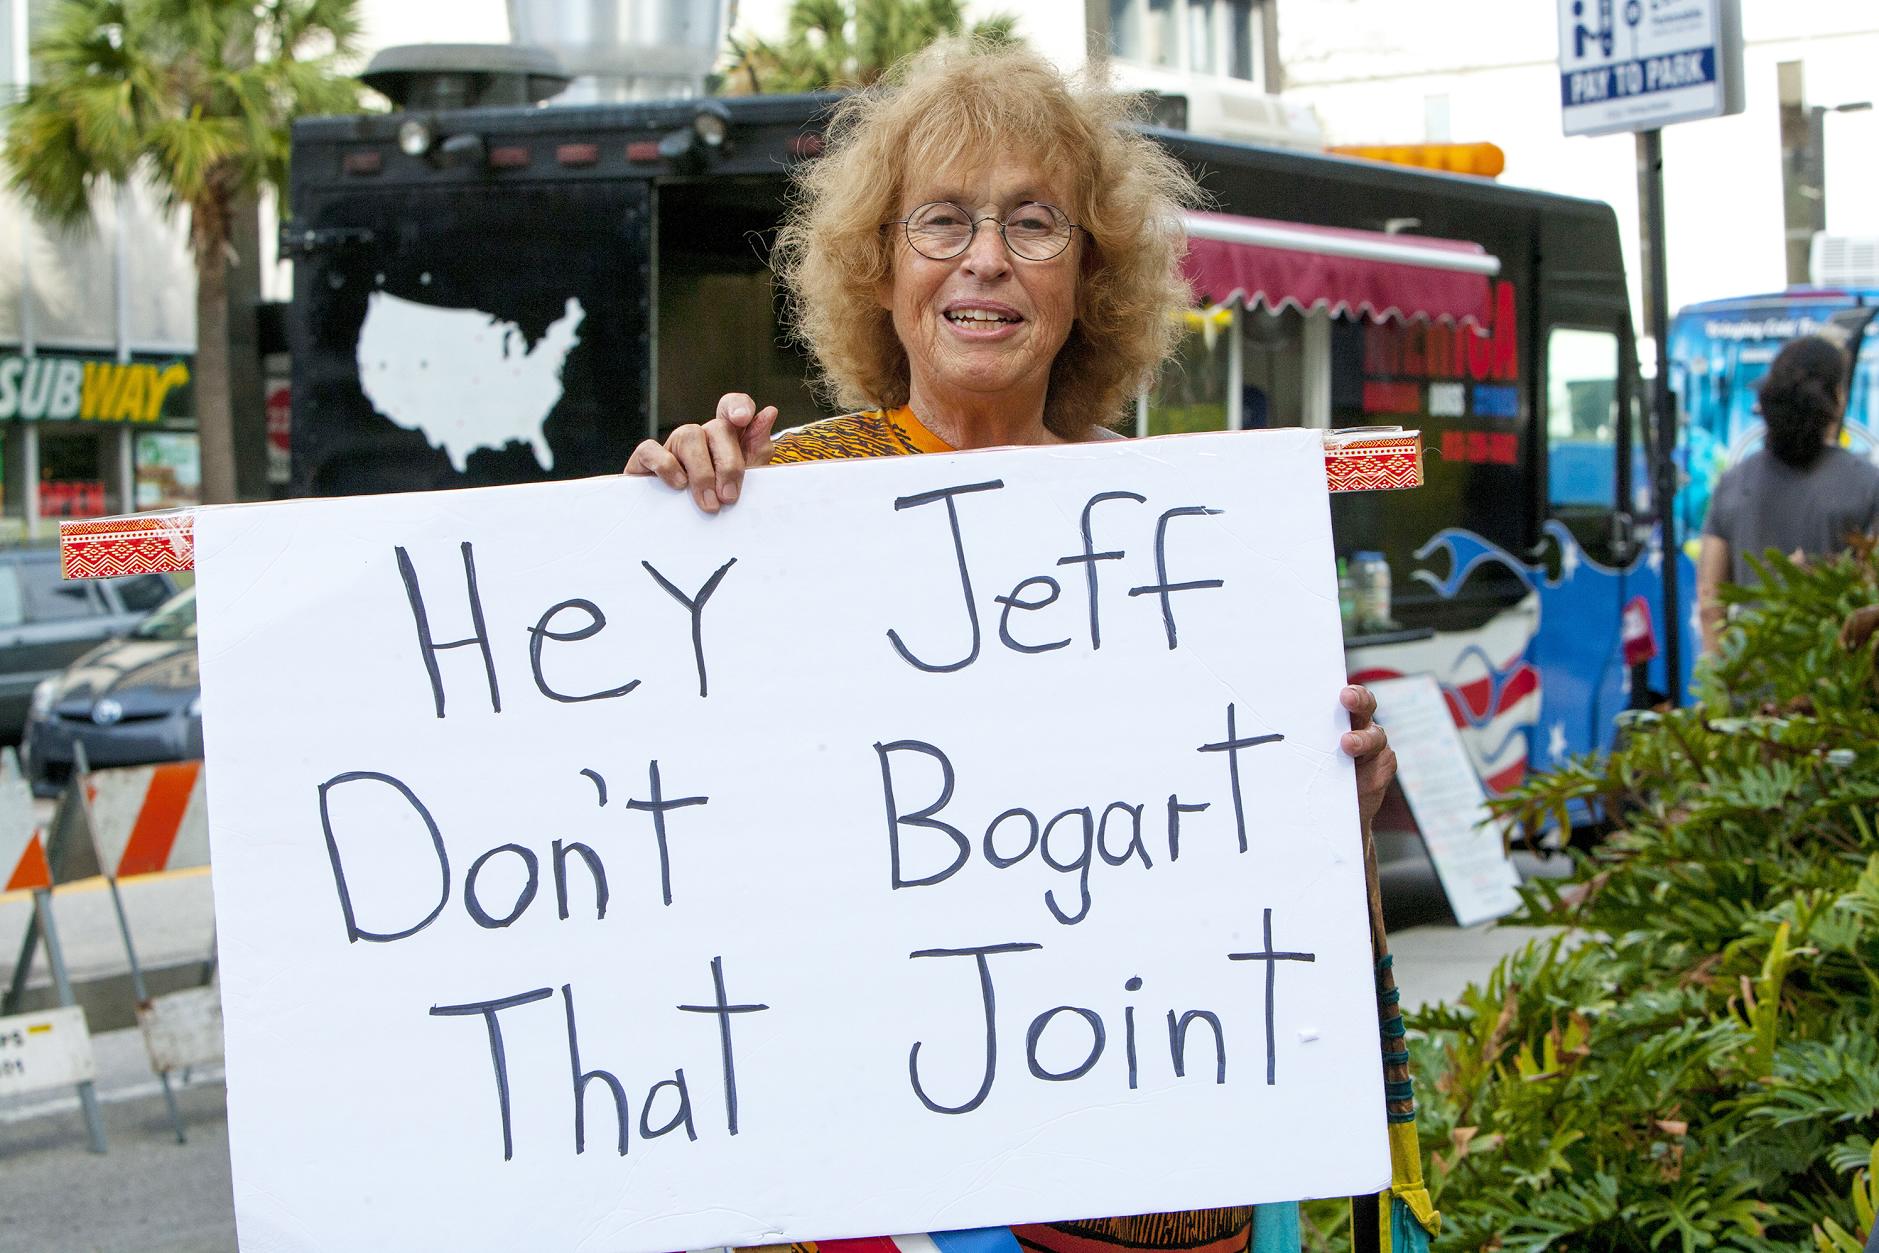 PAY TO PARK
SUBWAY
HeY Jeff
Don't Bogart
That Joint